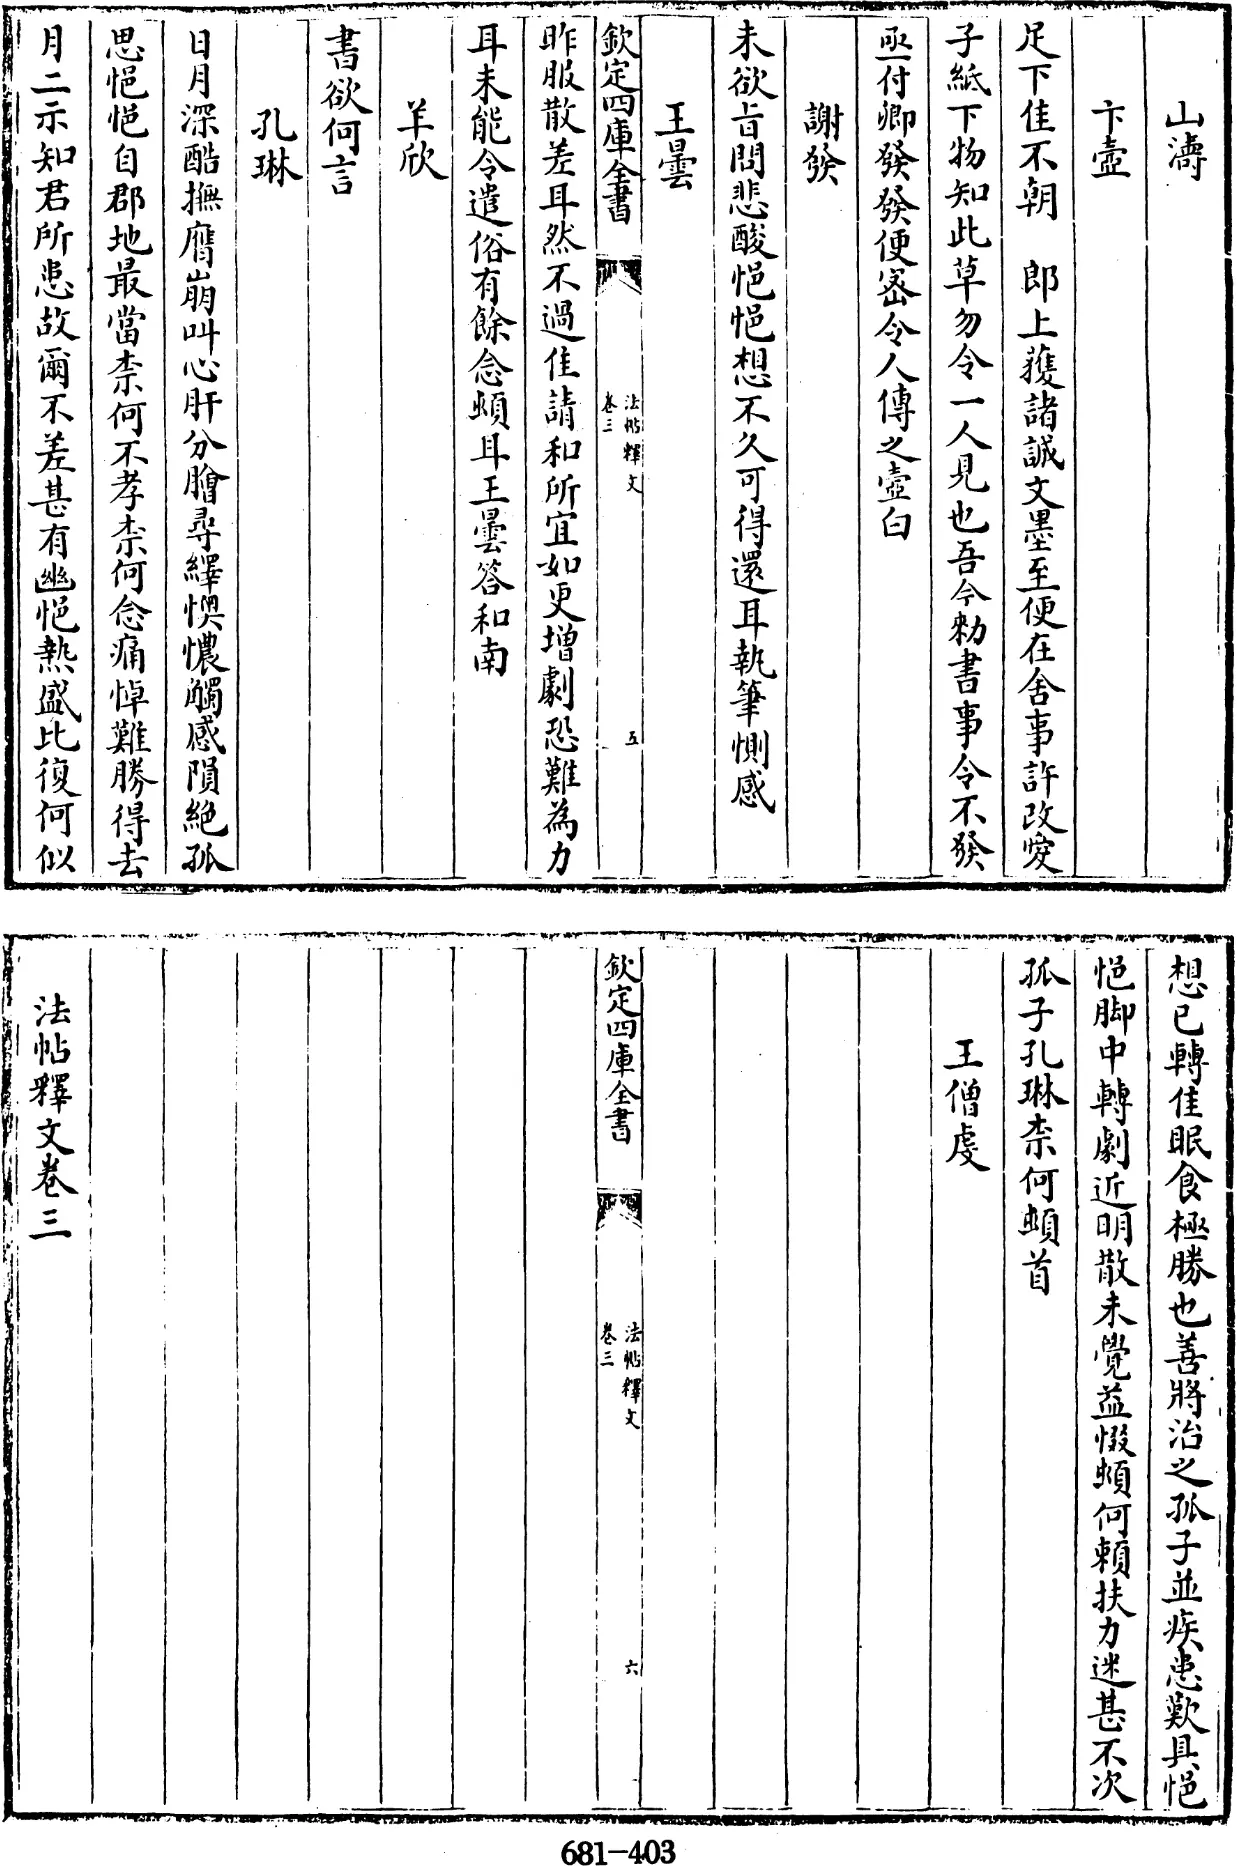 山濤
卞壼
足下佳不朝　郎上蒦諸誠文墨至便在舍事許改愛
子紙下物知此草勿令一人見也吾今勑書事令不發
亟付卿發發便密令人傳之壼白
謝發
未欲旨問悲酸悒悒想不久可得還耳執筆惻感
王曇
欽定四庫全書
法帖釋文
卷三
五
昨服散差耳然不過佳請和所宜如更增劇恐難為力
耳未能令遣俗有餘念頓耳王曇答和南
羊欣
書欲何言
孔琳
日月深酷撫膺崩叫心肝分膾尋繹懊憹觸感隕絕孤
思悒悒自郡地最當柰何不孝柰何念痛悼難勝得去
月二示知君所患故爾不差甚有幽悒熱盛比復何似
想已轉佳眠食極勝也善將治之孤子並疾患歎具悒
悒脚中轉劇近明散未覺益惙頓何賴扶力迷甚不次
孤子孔琳柰何頓首
王僧虔
欽定四庫全書
法帖釋文
卷三
六
法帖釋文卷三
681-403